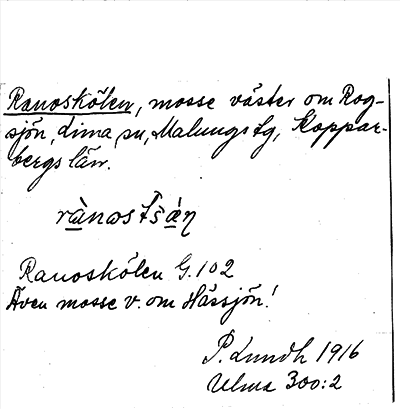 Ranoskölen, mosse väster om Rog-
sjön, Lima sn, Malungs tg, Koppar-
bergs län.
Ranoskölen G.102
Även mosse v. om Hässjön!
P. Lundh 1916
Ulma 300:2